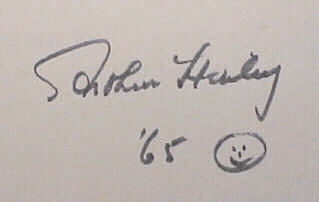 Arthur Hailey
'65